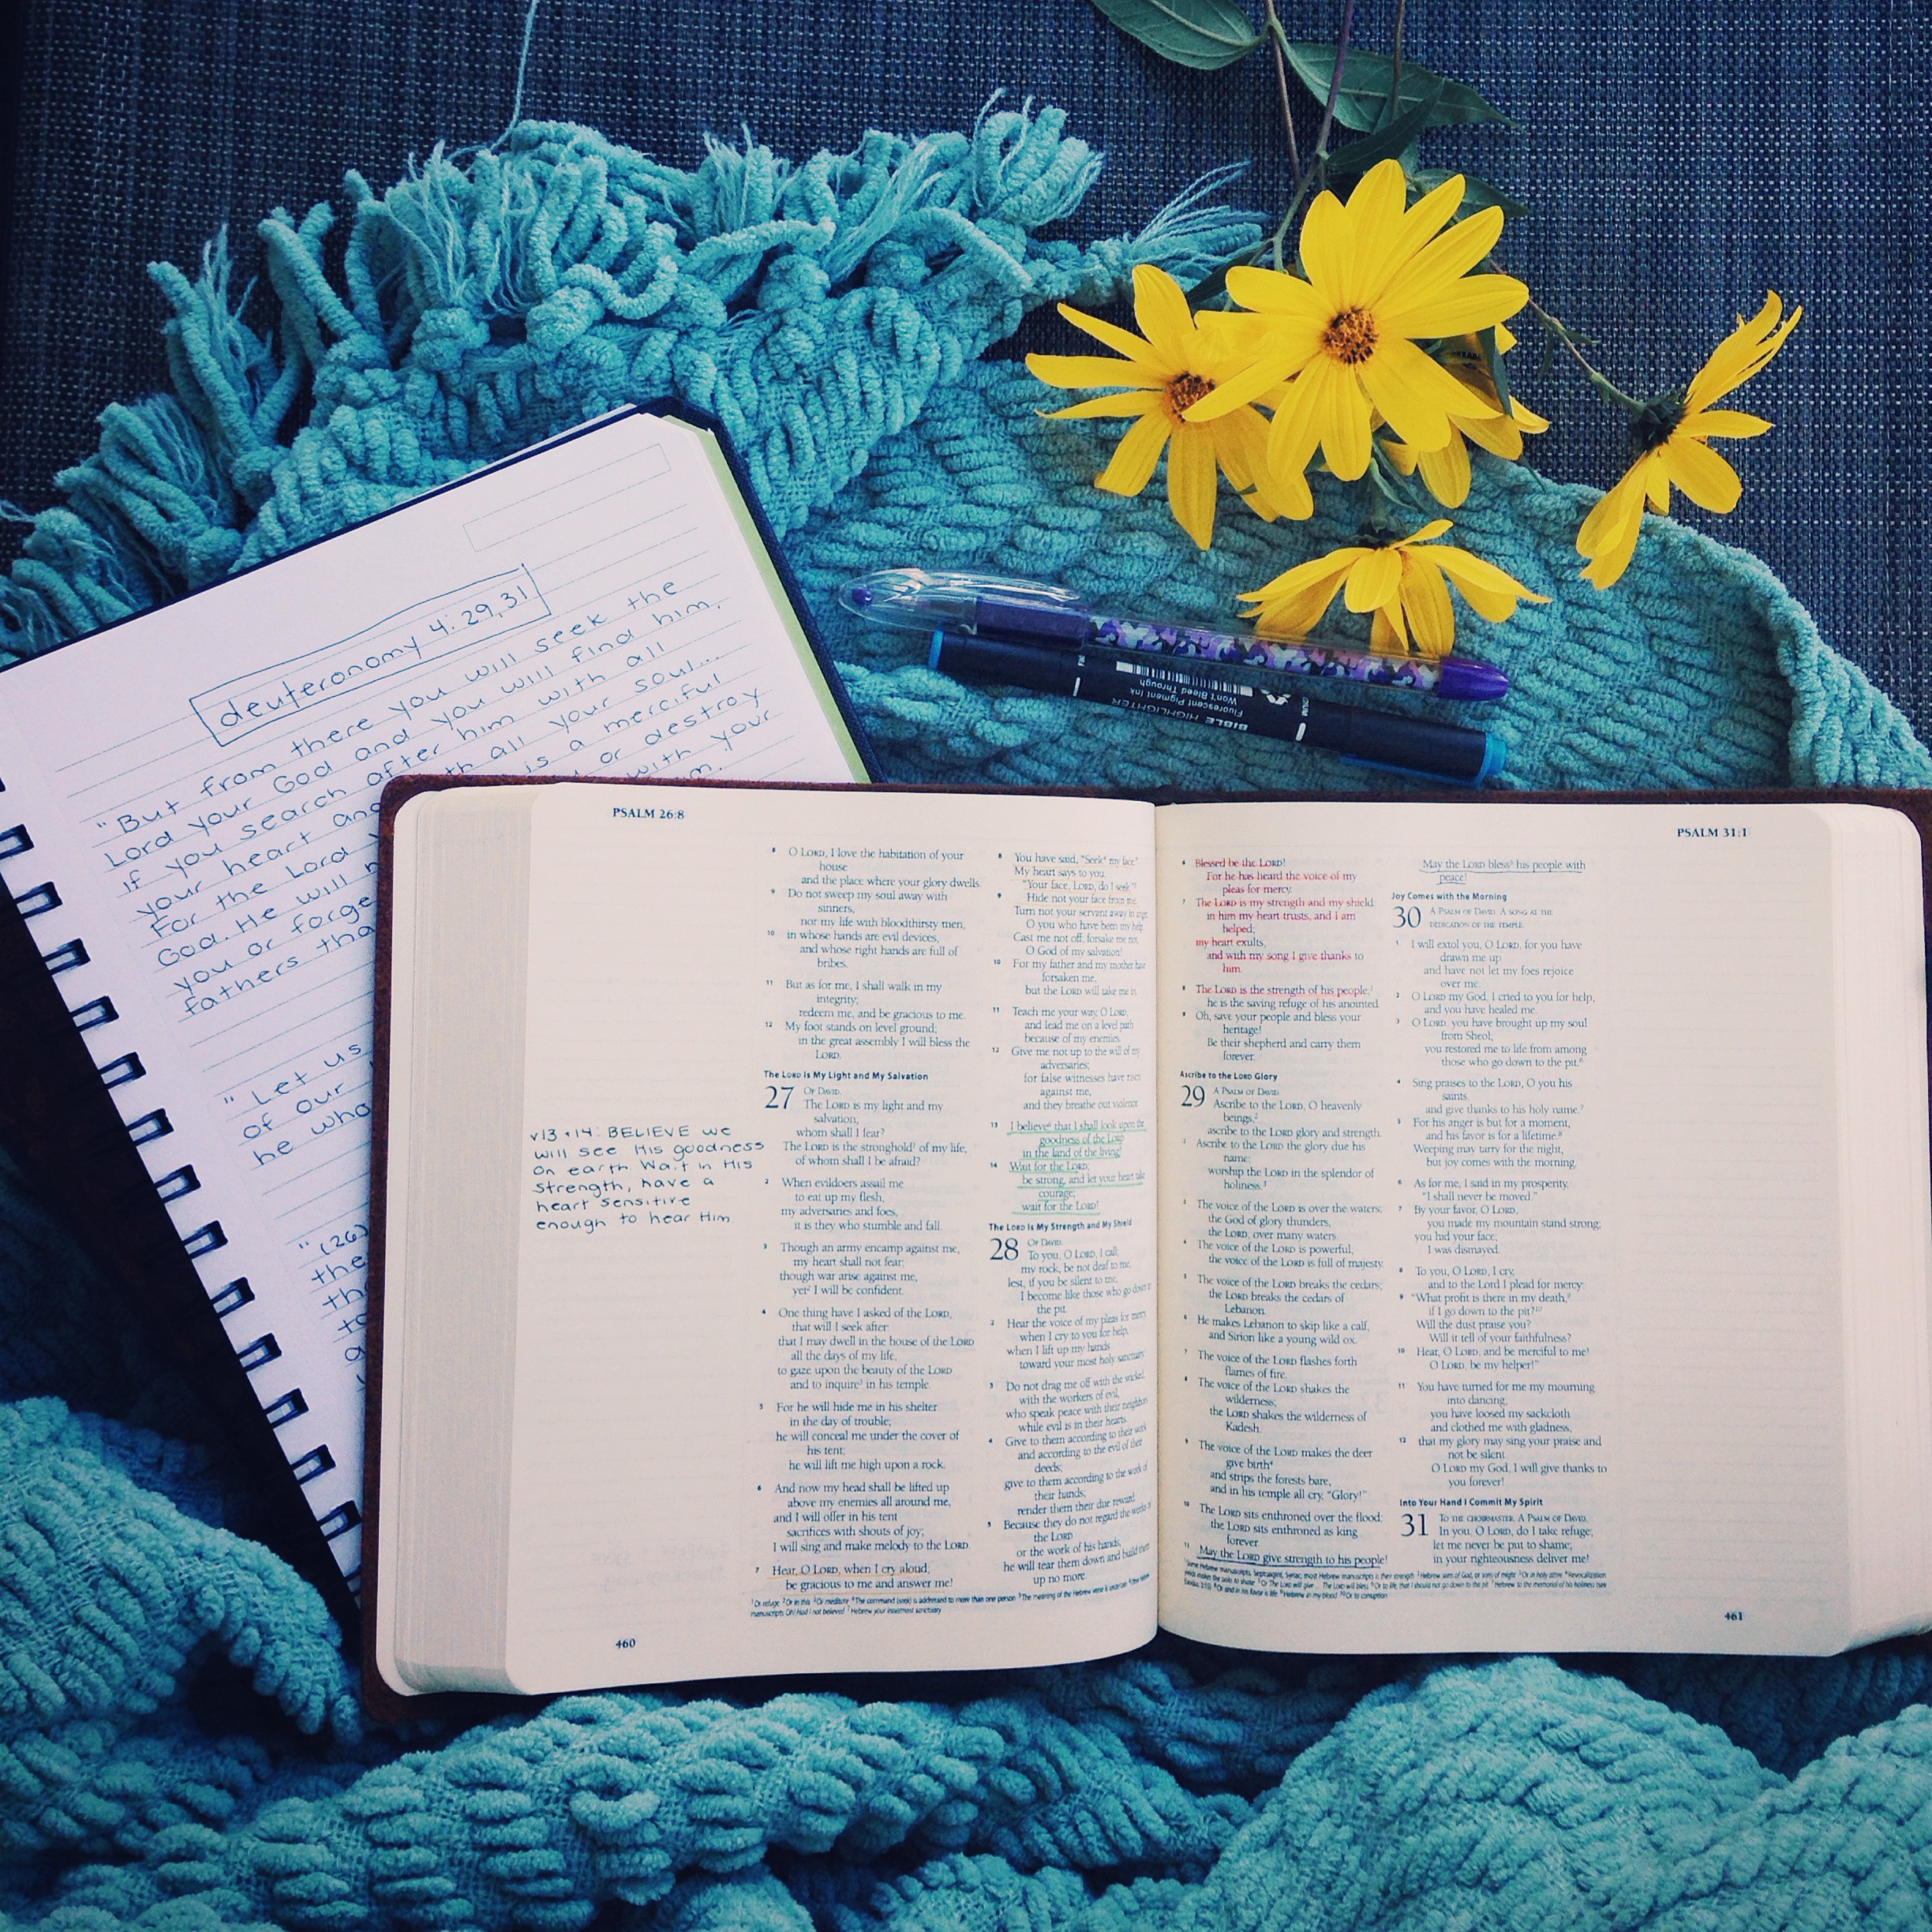 deuteronomy 4:29,31
"But from there you will seek the
Lord your God and you will find him,
if you search after him with all
your heart and all your soul...
For the Lord is a merciful
God. He will or destroy
you or forge with your
fathers tha
"Let us
of our
he who
"(26)
the
BIBLE HIGHLIGHTER
Fluorescent Pigment Ink
Won't Bleed Through
PSALM 26:8
8 O LORD, I love the habitation of your
house
and the place where your glory dwells.
9 Do not sweep my soul away with
sinners,
nor my life with bloodthirsty men,
10 in whose hands are evil devices,
and whose right hands are full of
bribes.
11 But as for me, I shall walk in my
integrity;
redeem me, and be gracious to me.
12 My foot stands on level ground;
in the great assembly I will bless the
LORD.
The LORD Is My Light and My Salvation
27 OF DAVID.
The LORD is my light and my
salvation;
whom shall I fear?
The LORD is the stronghold1 of my life;
of whom shall I be afraid?
2 When evildoers assail me
to eat up my flesh,
my adversaries and foes,
it is they who stumble and fall.
3 Though an army encamp against me,
my heart shall not fear;
though war arise against me,
yet2 I will be confident.
4 One thing have I asked of the LORD,
that will I seek after:
that I may dwell in the house of the LORD
all the days of my life,
to gaze upon the beauty of the LORD
and to inquire3 in his temple.
5 For he will hide me in his shelter
in the day of trouble;
he will conceal me under the cover of
his tent;
he will lift me high upon a rock.
6 And now my head shall be lifted up
above my enemies all around me,
and I will offer in his tent
sacrifices with shouts of joy;
I will sing and make melody to the LORD.
7 Hear, O LORD, when I cry aloud;
be gracious to me and answer me!
v13+14: BELIEVE we
will see His goodness
on earth. Wait in His
strength, have a
heart sensitive
enough to hear Him
8 You have said, "Seek4 my face."
My heart says to you,
"Your face, LORD, do I seek."
9 Hide not your face from me.
Turn not your servant away in anger,
O you who have been my help.
Cast me not off; forsake me not,
O God of my salvation!
10 For my father and my mother have
forsaken me,
but the LORD will take me in.
11 Teach me your way, O LORD,
and lead me on a level path
because of my enemies.
12 Give me not up to the will of my
adversaries;
for false witnesses have risen
against me,
and they breathe out violence.
13 I believe that I shall look upon the
goodness of the LORD
in the land of the living!
14 Wait for the LORD;
be strong, and let your heart take
courage;
wait for the LORD!
The LORD Is My Strength and My Shield
28 OF DAVID.
To you, O LORD, I call;
my rock, be not deaf to me,
lest, if you be silent to me,
I become like those who go down to
the pit.
2 Hear the voice of my pleas for mercy,
when I cry to you for help,
when I lift up my hands
toward your most holy sanctuary.
3 Do not drag me off with the wicked,
with the workers of evil,
who speak peace with their neighbors
while evil is in their hearts.
4 Give to them according to their work
and according to the evil of their
deeds;
give to them according to the work of
their hands;
render them their due reward.
5 Because they do not regard the works of
the LORD
or the work of his hands,
he will tear them down and build them
up no more.
460
PSALM 31:1
6 Blessed be the LORD!
For he has heard the voice of my
pleas for mercy.
7 The LORD is my strength and my shield;
in him my heart trusts, and I am
helped;
my heart exults,
and with my song I give thanks to
him.
8 The LORD is the strength of his people;1
he is the saving refuge of his anointed.
9 Oh, save your people and bless your
heritage!
Be their shepherd and carry them
forever.
Ascribe to the LORD Glory
29 A PSALM OF DAVID.
Ascribe to the LORD, O heavenly
beings,2
ascribe to the LORD glory and strength.
2 Ascribe to the LORD the glory due his
name;
worship the LORD in the splendor of
holiness.3
3 The voice of the LORD is over the waters;
the God of glory thunders,
the LORD, over many waters.
4 The voice of the LORD is powerful;
the voice of the LORD is full of majesty.
5 The voice of the LORD breaks the cedars;
the LORD breaks the cedars of
Lebanon.
6 He makes Lebanon to skip like a calf,
and Sirion like a young wild ox.
7 The voice of the LORD flashes forth
flames of fire.
8 The voice of the LORD shakes the
wilderness;
the LORD shakes the wilderness of
Kadesh.
9 The voice of the LORD makes the deer
give birth4
and strips the forests bare,
and in his temple all cry, "Glory!"
10 The LORD sits enthroned over the flood;
the LORD sits enthroned as king
forever.
11 May the LORD give strength to his people!
May the LORD bless5 his people with
peace!
Joy Comes with the Morning
30 A PSALM OF DAVID. A SONG AT THE
DEDICATION OF THE TEMPLE.
1 I will extol you, O LORD, for you have
drawn me up
and have not let my foes rejoice
over me.
2 O LORD my God, I cried to you for help,
and you have healed me.
3 O LORD, you have brought up my soul
from Sheol;
you restored me to life from among
those who go down to the pit.6
4 Sing praises to the LORD, O you his
saints,
and give thanks to his holy name.7
5 For his anger is but for a moment,
and his favor is for a lifetime.8
Weeping may tarry for the night,
but joy comes with the morning.
6 As for me, I said in my prosperity,
"I shall never be moved."
7 By your favor, O LORD,
you made my mountain stand strong;
you hid your face;
I was dismayed.
8 To you, O LORD, I cry,
and to the Lord I plead for mercy:
9 "What profit is there in my death,9
if I go down to the pit?10
Will the dust praise you?
Will it tell of your faithfulness?
10 Hear, O LORD, and be merciful to me!
O LORD, be my helper!"
11 You have turned for me my mourning
into dancing;
you have loosed my sackcloth
and clothed me with gladness,
12 that my glory may sing your praise and
not be silent.
O LORD my God, I will give thanks to
you forever!
Into Your Hand I Commit My Spirit
31 TO THE CHOIRMASTER. A PSALM OF DAVID.
In you, O LORD, do I take refuge;
let me never be put to shame;
in your righteousness deliver me!
461